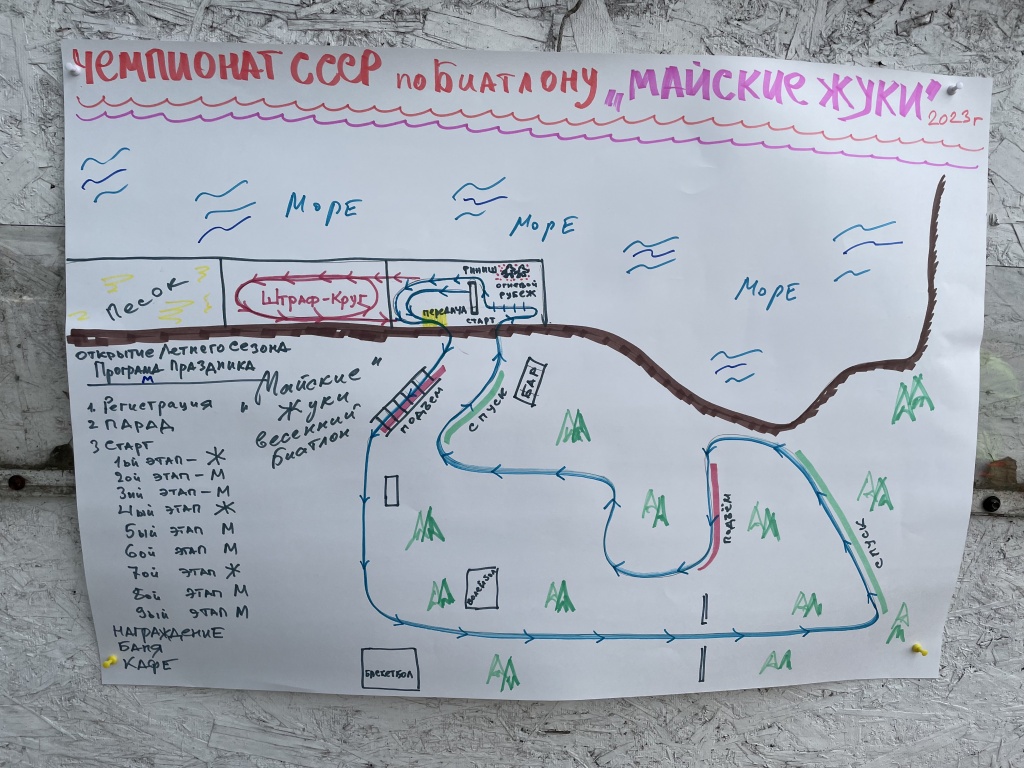 ЧЕМПИОНАТ СССР по БИАТЛОНУ „МАЙСКИЕ ЖУКИ"
2023г
МОРЕ
МОРЕ
МОРЕ
ПЕСОК
ШТРАФ-КРУГ
ФИНИШ
ОГНЕВОЙ
РУБЕЖ
ПЕРЕДАЧА
СТАРТ
ОТКРЫТИЕ ЛЕТНЕГО СЕЗОНА
ПРОГРАМА ПРАЗДНИКА
М
1. РЕГИСТРАЦИЯ
2 ПАРАД
3 СТАРТ
1ый ЭТАП – Ж
2ой ЭТАП – М
3ий ЭТАП – М
4ый ЭТАП Ж
5ый ЭТАП М
6ой ЭТАП М
7ой ЭТАП Ж
8ой ЭТАП М
9ый ЭТАП М
НАГРАЖДЕНИЕ
БАНЯ
КАФЕ
"МАЙСКИЕ"
ЖУКИ
ВЕСЕННИЙ
БИАТЛОН
ПОДЪЁМ
СПУСК
БАР
ПОДЪЁМ
СПУСК
ВОЛЕЙБОЛ
БАСКЕТБОЛ